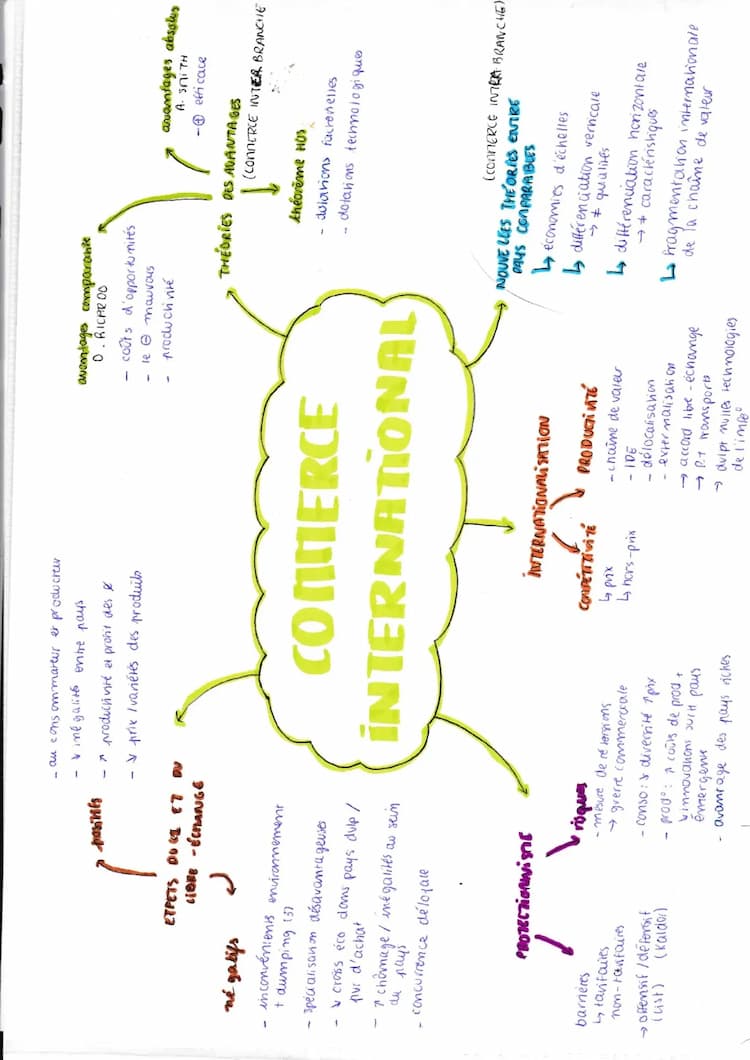 COMMERCE
INTERNATIONAL
EFFETS DU CI ET DU
LIBRE-ÉCHANGE
positifs
- au consommateur et producteur
- ↘ inégalités entre pays
- ↗ productivité et profit des
- ↘ prix / variétés des produits
négatifs
- inconvénients environnement
+ dumping (3)
- spécialisation désavantageuses
- ↘ croiss éco dans pays dvlp /
pvr d'achat
- ↗ chômage / inégalités au sein
du pays
- concurrence déloyale
THÉORIES DES AVANTAGES
(COMMERCE INTER BRANCHE)
avantages comparatifs
D. RICARDO
- coûts d'opportunités
- le ⊖ mauvais
- productivité
avantages absolus
A. SMITH
- ⊕ efficace
théorème HOS
- dotations factorielles
- dotations technologiques
PROTECTIONNISME
barrières
↳ tarifaires
non-tarifaires
→ offensif / défensif
(List) (Kaldor)
risques
- mesure de rétorsions
→ guerre commerciale
- conso : ↘ diversité ↗ prix
- prod° : ↗ coûts de prod +
↘ innovations sur le pays
émergents
- avantage des pays riches
INTERNATIONALISATION
COMPÉTITIVITÉ
↳ prix
↳ hors-prix
PRODUCTIVITÉ
- chaîne de valeur
- IDE
- délocalisation
- externalisation
→ accord libre-échange
→ P.T transports
→ dvlpt nvlles technologies
de l'info°
NOUVELLES THÉORIES ENTRE
PAYS COMPARABLES
(COMMERCE INTRA BRANCHE)
↳ économies d'échelles
↳ différenciation verticale
→ ≠ qualités
↳ différenciation horizontale
→ ≠ caractéristiques
↳ fragmentation internationale
de la chaîne de valeur